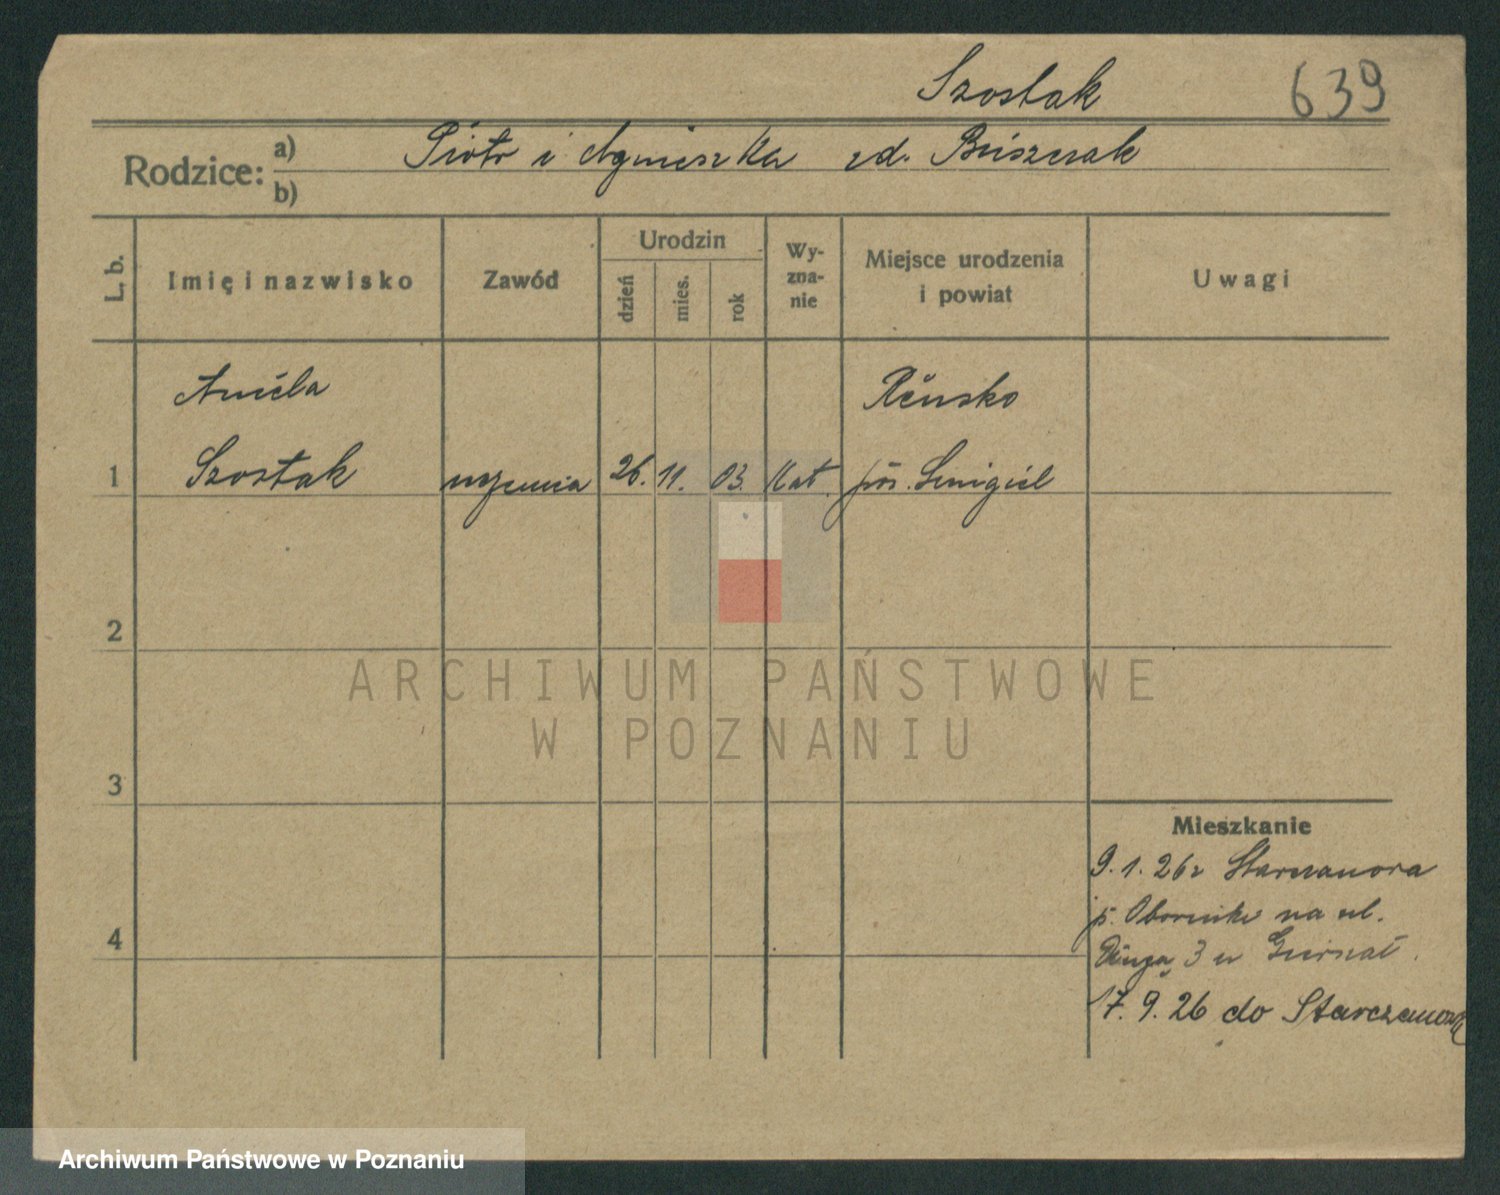 Szostak 639
Rodzice: a) Piotr i Agnieszka zd.
b)
L. b.
Imię i nazwisko
Zawód
Urodzin
dzień
mies.
rok
Wy-
zna-
nie
Miejsce urodzenia
i powiat
Uwagi
Aniela
Reńsko
1 Szostak uczenica 26. 11. 03. Kat. pow. Śmigiel
2
3
4
Mieszkanie
9.1.26r Starczanowa
p. Oborniki na ul.
Długą 3 u
17.9.26 do Starczanowa
ARCHIWUM PAŃSTWOWE
W POZNANIU
Archiwum Państwowe w Poznaniu